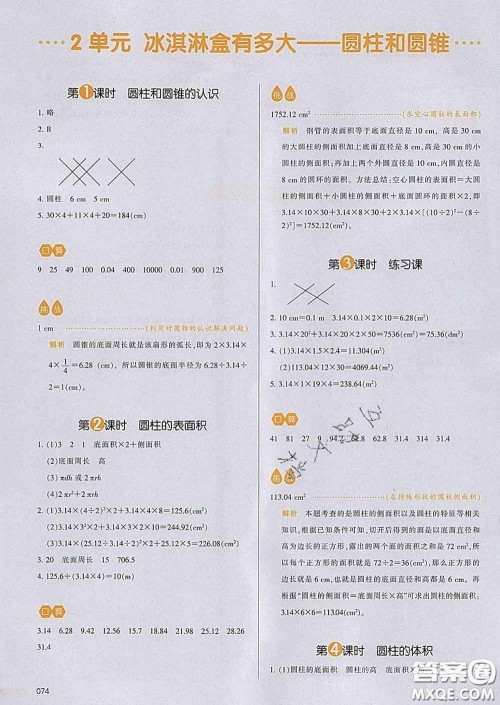 2 单元 冰淇淋盒有多大——圆柱和圆锥
第1课时 圆柱和圆锥的认识
1. 略
2. B
3.
4. 圆柱 6 cm 5 cm
5. 30×4+11×4+20=184(cm)
口算
9 25 49 100 0.04 400 10000 0.01 900 125
挑战
1 cm (利用对圆锥的认识解决问题)
解析 圆锥的底面周长就是该扇形的弧长,即为2×3.14
×4×1/4=6.28(cm),所以圆锥的底面半径为6.28÷3.14÷
2=1(cm)。
第2课时 圆柱的表面积
1. (1)3 2 1 底面积×2+侧面积
(2)底面周长 高
(3)πdh 2πrh
(4)2πr²+2πrh
2. (1)3.14×(4÷2)²×2+3.14×4×8=125.6(cm²)
(2)3.14×3²×2+3.14×3×2×10=244.92(cm²)
(3)3.14×(25.12÷3.14÷2)²×2+25.12×5=226.08(cm²)
3. 20 底面周长 15 706.5
4. 125.6÷(3.14×4)=10(m)
口算
3.14 6.28 9.42 12.56 15.7 18.84 21.98 25.12 28.26
31.4
074
挑战
1752.12 cm² (求空心圆柱的表面积)
解析 钢管的表面积等于底面直径是10 cm,高是30 cm
的大圆柱的侧面积加上底面直径是8 cm,高是30 cm的小
圆柱的侧面积;再加上两个外圆直径是10 cm,内圆直径是
8 cm的圆环的面积。方法总结:空心圆柱的表面积=大圆
柱的侧面积+小圆柱的侧面积+底面圆环的面积×2,即
3.14×10×30+3.14×8×30+3.14×[(10÷2)²-(8÷
2)²]×2=1752.12(cm²)。
第3课时 练习课
1.
2. 10 cm=0.1 m 3.14×0.1×2×120=75.36(m²)
3. 3.14×20×1.2=75.36(dm²)
4. (1)3.14×1.5×2.4≈11.304(m²)
(2)113.04×12×30=4069.44(m²)
5. 3.14×2×19×2=238.64(cm²)
口算
41 81 27 9 94.2 62.8 31.4 314
挑战
113.04 cm² (求特殊形状的圆柱侧面积)
解析 本题考查的是圆柱以及圆柱的特征等相关
知识。根据已知条件可知,切口下面是一个以底面直径
和高为边长的正方形,露出的两个面的面积之和是72 cm²,所
以切开的一个面的面积就是72÷2=36(cm²),那么正方形的
边长就是6 cm,也就是圆柱的底面直径和高都是6 cm。再
根据“圆柱的侧面积=底面周长×高”可求出圆柱的侧面积。
3.14×6×6=113.04(cm²)
第4课时 圆柱的体积
1. (1)圆柱的底面积 圆柱的高 底面积
答案圈
MXQE.COM